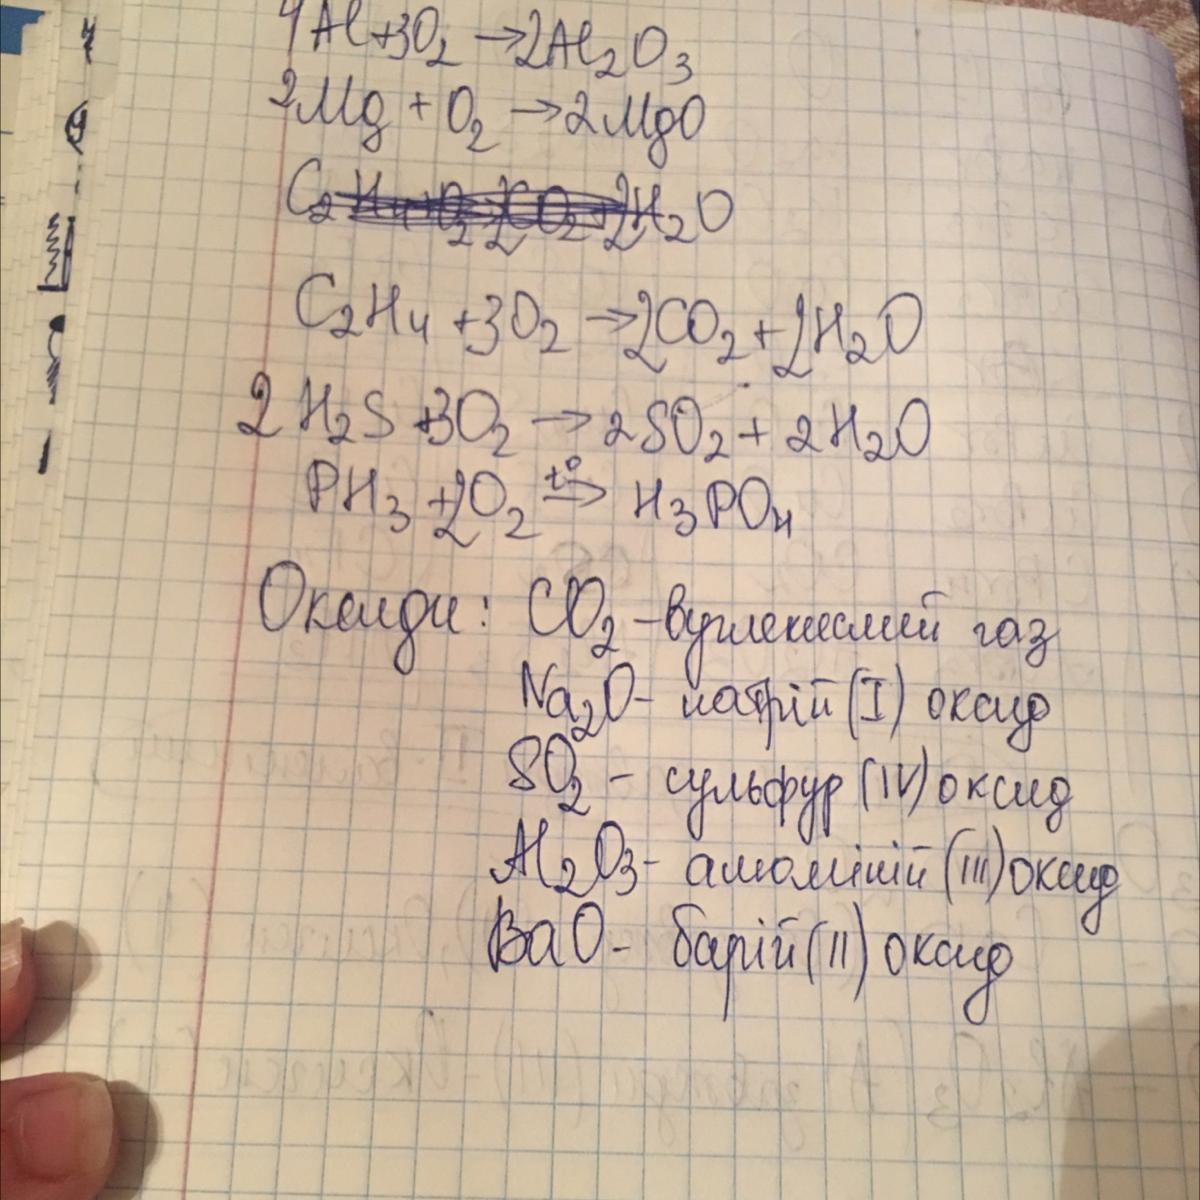 4Al+3O₂ → 2Al₂O₃
2Mg + O₂ → 2MgO
C₂H₄+O₂ 2CO₂+2H₂O
C₂H₄ +3O₂ → 2CO₂+2H₂O
2H₂S +3O₂ → 2SO₂+ 2H₂O
PH₃ +2O₂ t° → H₃PO₄
Оксиди: CO₂ – вуглекислий газ
Na₂O – натрій (I) оксид
SO₂ – сульфур (IV) оксид
Al₂O₃ – алюміній (III) оксид
BaO – барій (II) оксид